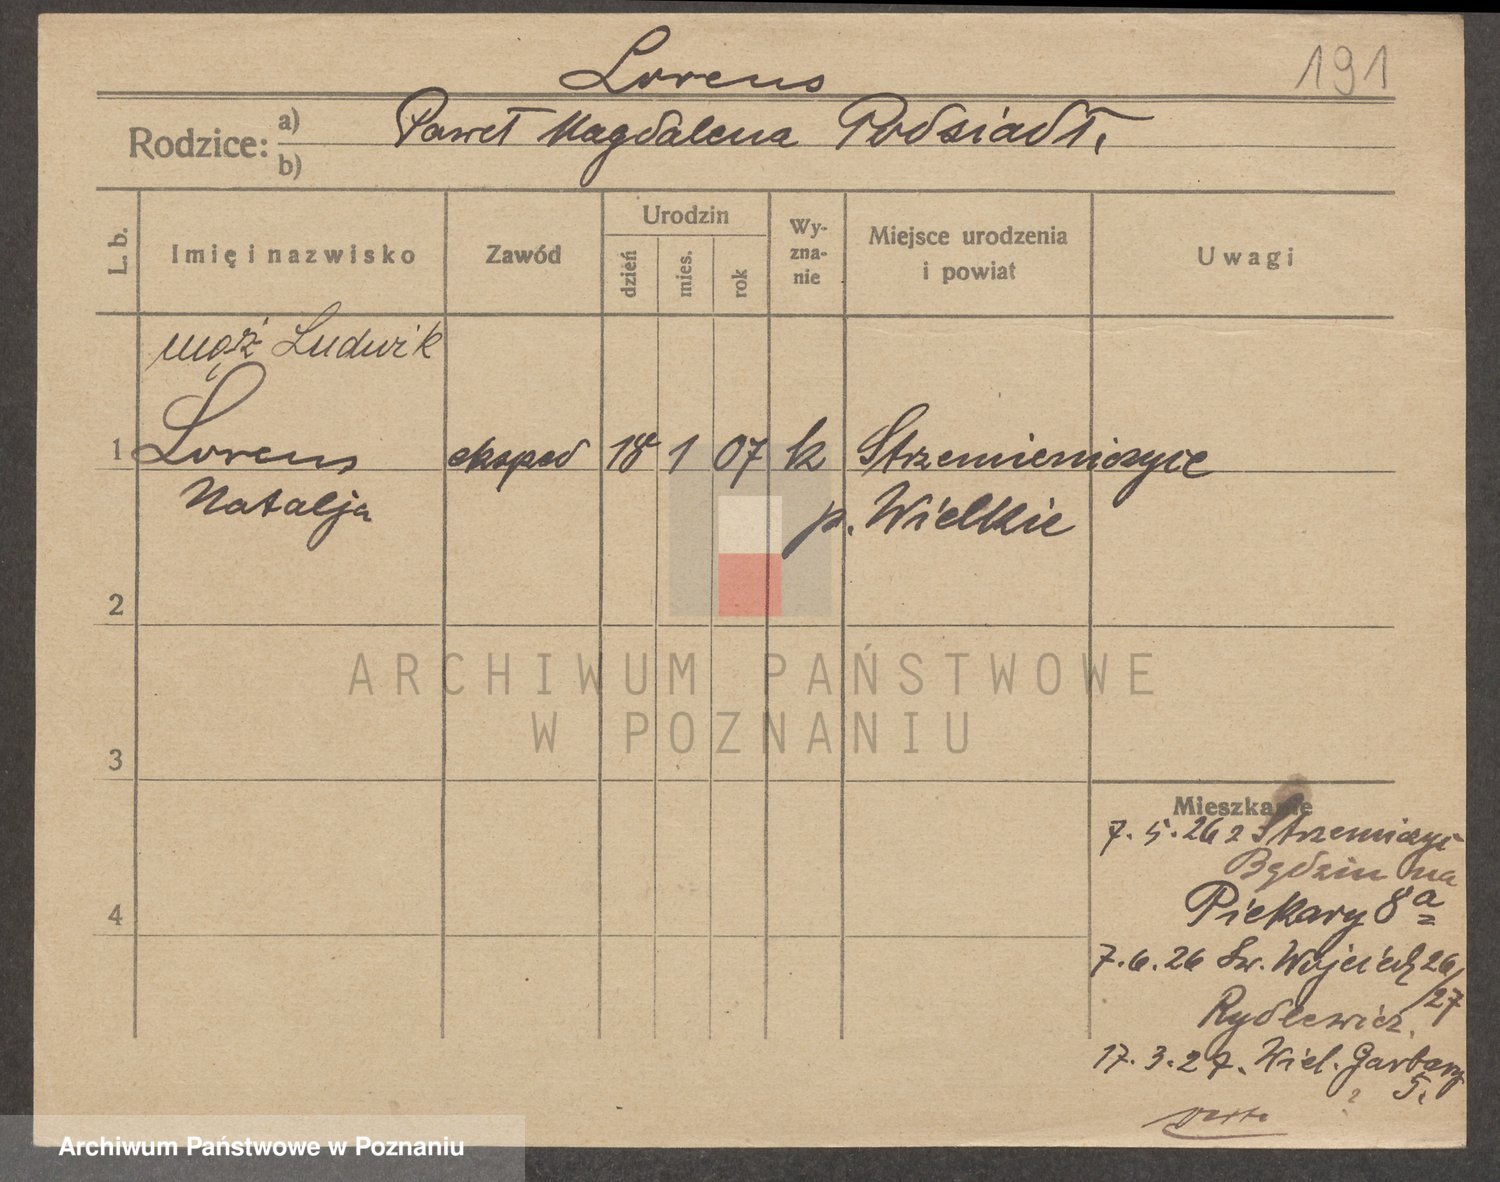 Lorens
191
Rodzice: a) Paweł Magdalena Podsiadł.
b)
L. b.
Imię i nazwisko
Zawód
Urodzin
dzień
mies.
rok
Wy-
zna-
nie
Miejsce urodzenia
i powiat
Uwagi
mąż Ludwik
1 Lorens eksped 18 1 07 k Strzemieniczyce
Natalja p. Wielkie
2
3
4
Mieszkanie
7. 5. 26 z Strzemieszyc
Będzin na
Piekary 8a
7. 6. 26 Św. Wojciech 26/
27
Rydlewicz.
17. 3. 27. Wiel. Garbary
5.
verte
ARCHIWUM PAŃSTWOWE
W POZNANIU
Archiwum Państwowe w Poznaniu